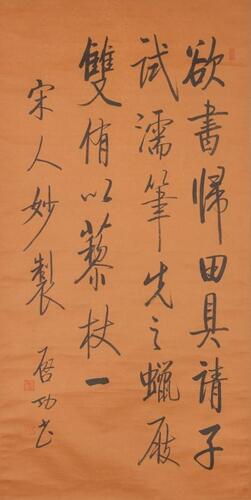 欲書歸田具請子
試濡筆先之蠟屐
雙侑以藜杖一
宋人妙製
啓功書